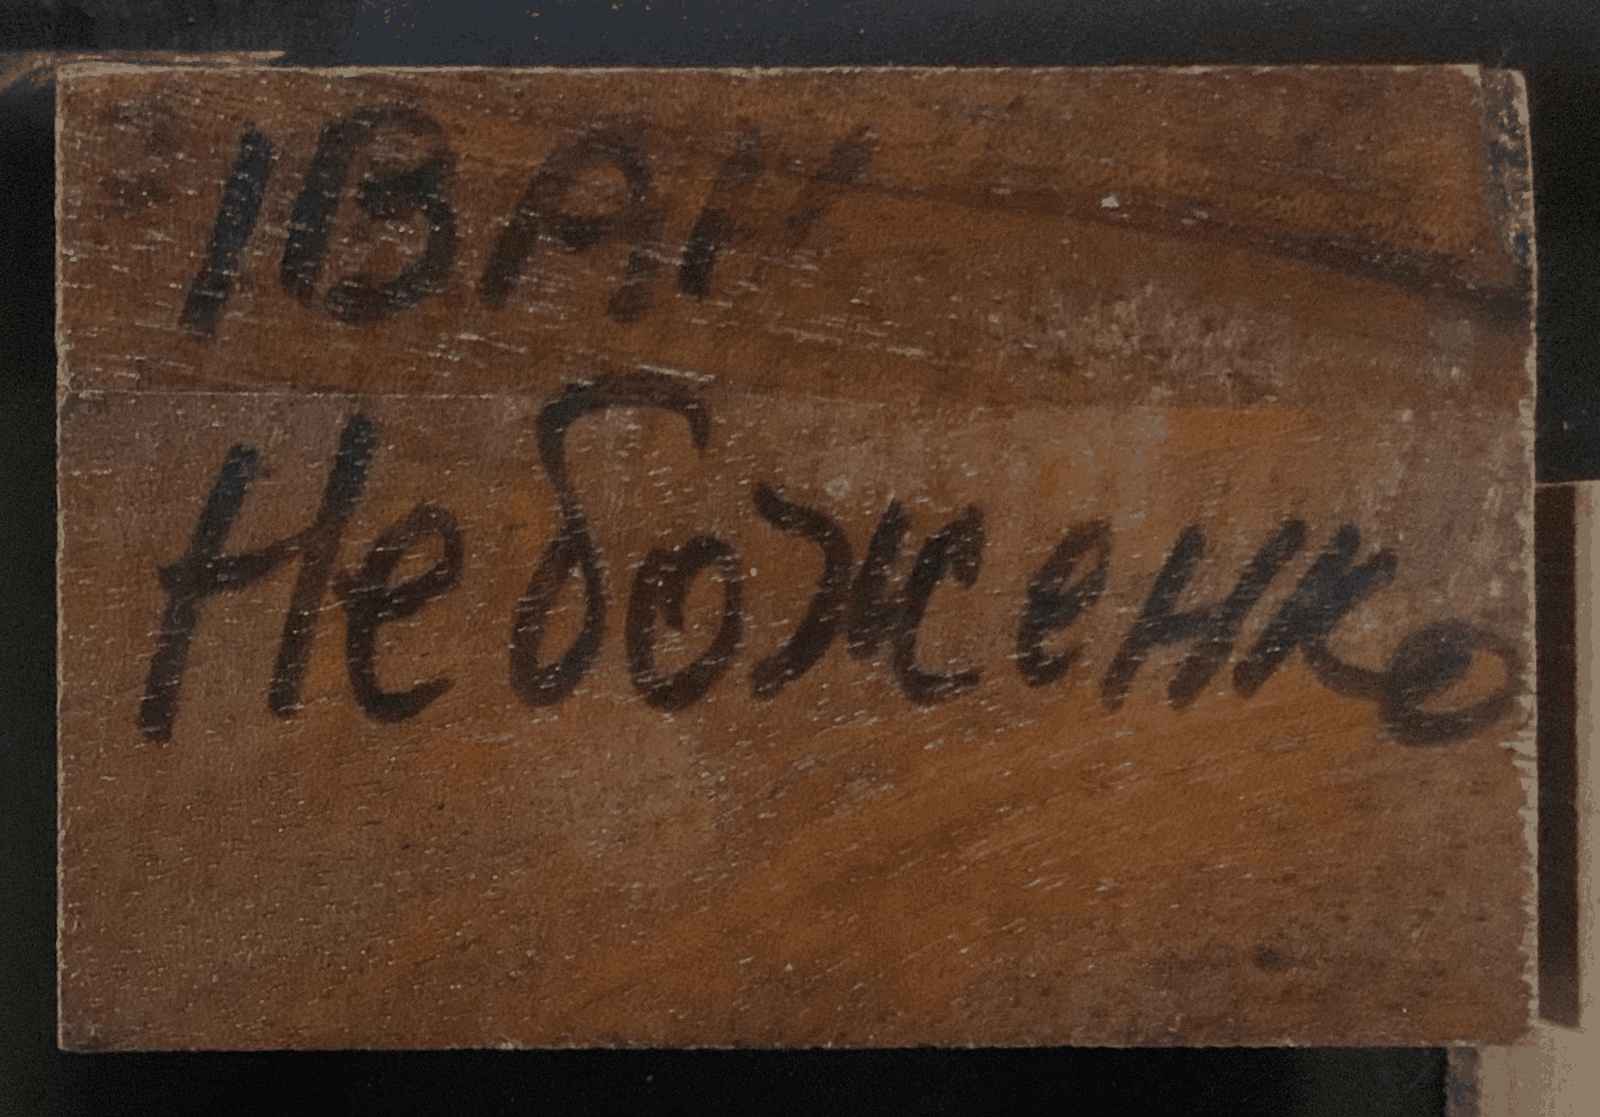 ІВАН
Небоженко